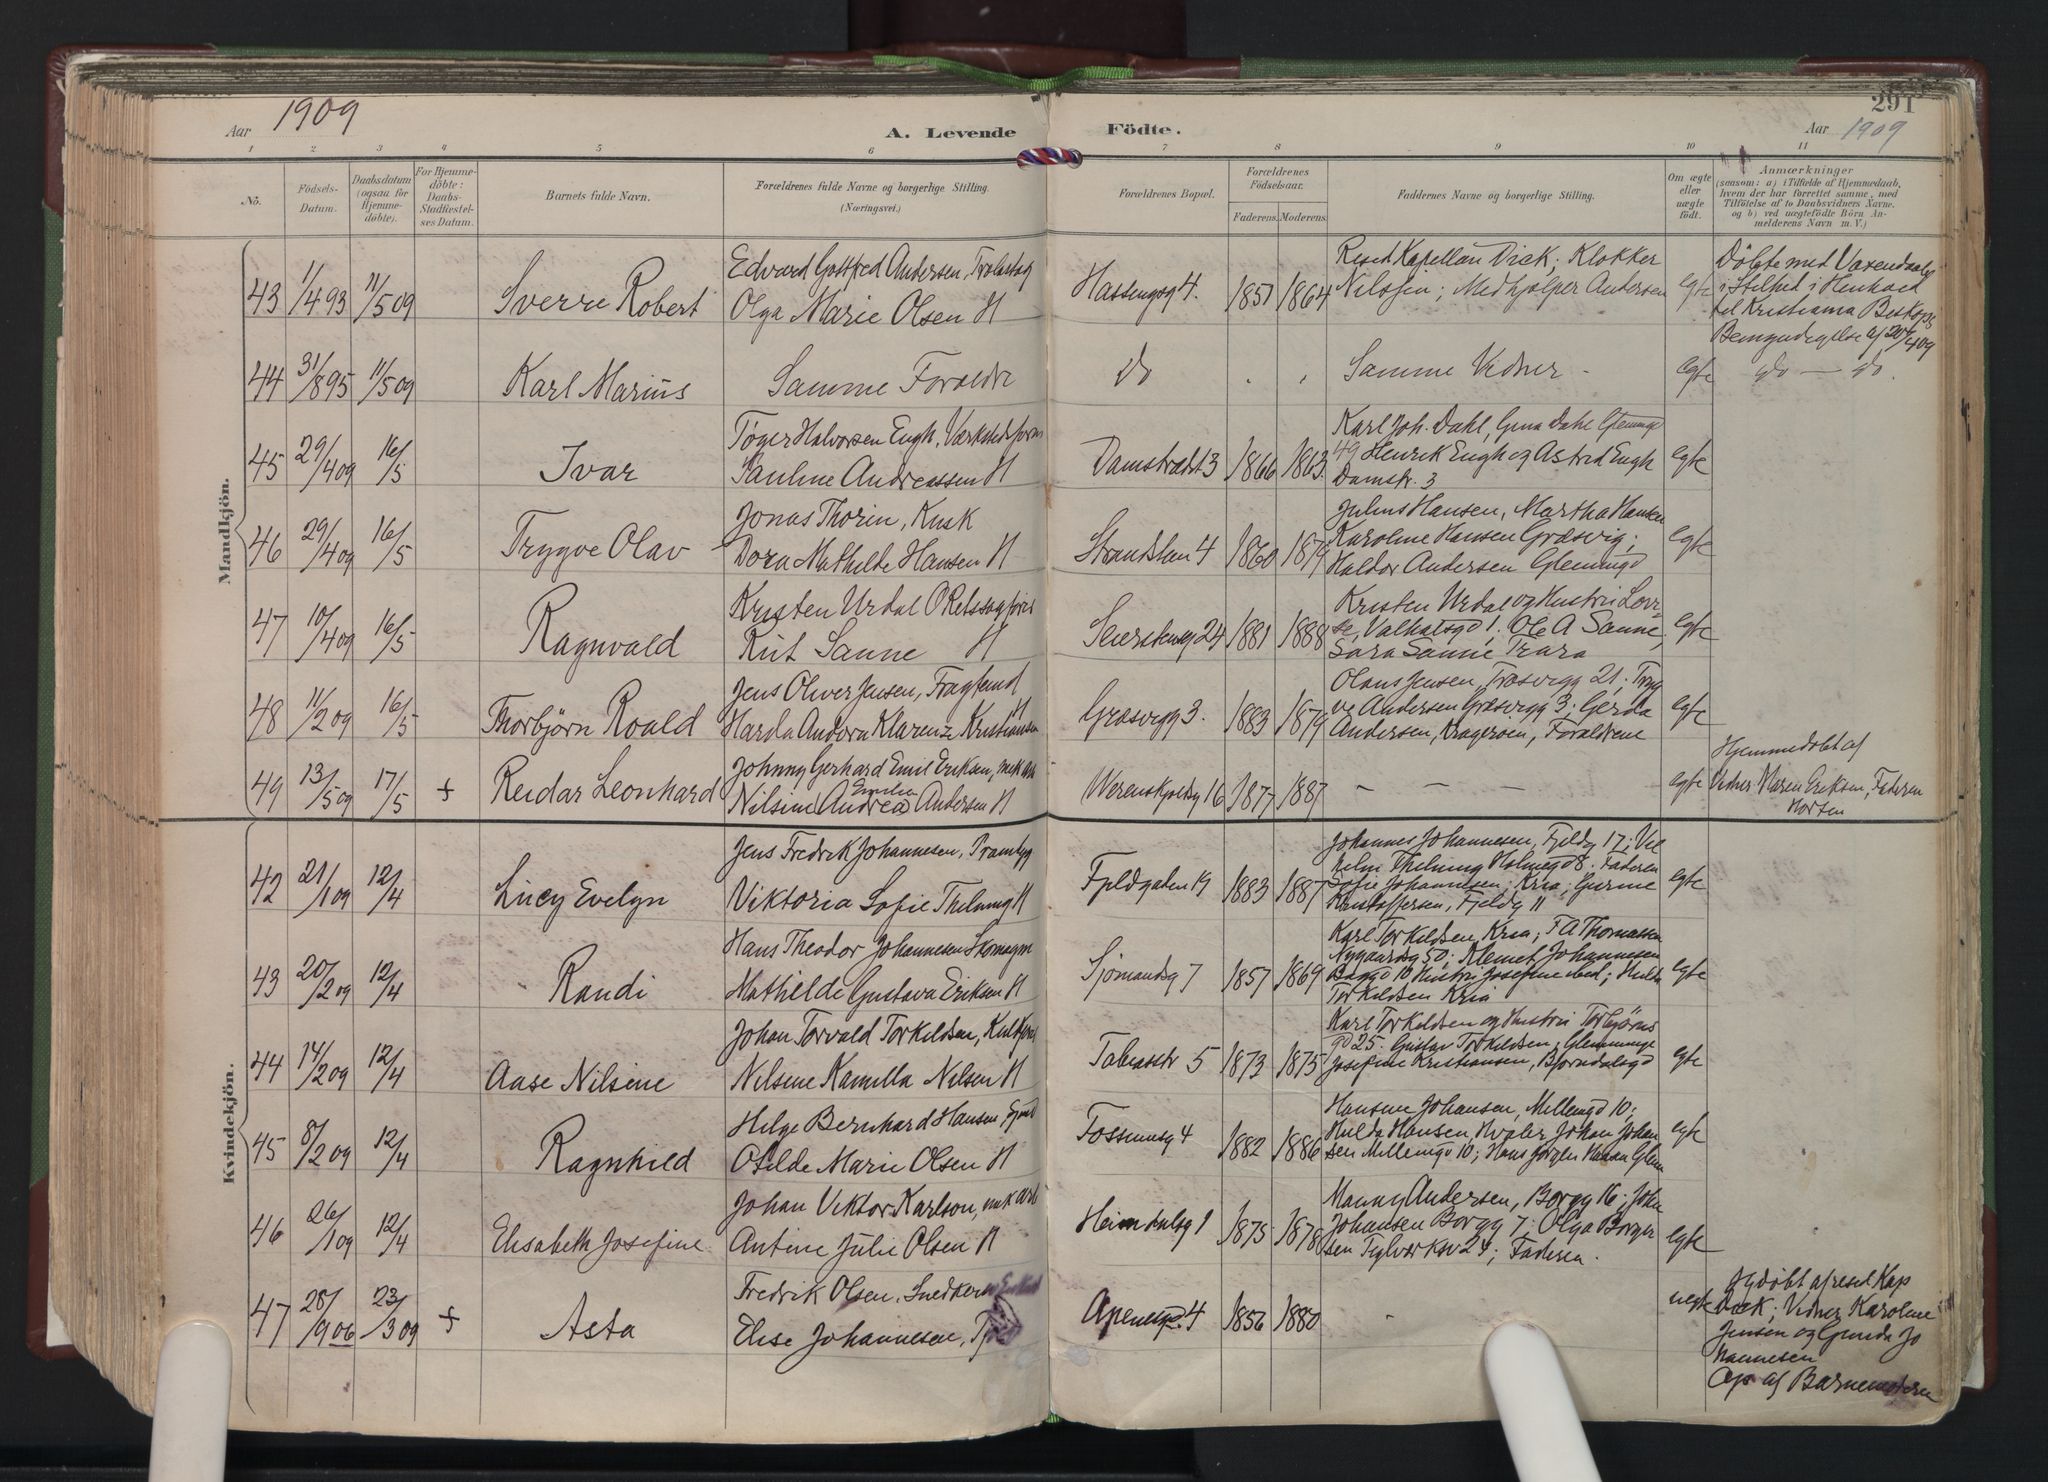 291
Aar 1909
A. Levende Födte.
Aar 1909
1 2 3 4 5 6 7 8 9 10 11
No.
Födsels-Datum.
Daabsdatum (ogsaa for Hjemme-döbte).
For Hjemme-döbte: Daabs-Stadfæstel-ses Datum.
Barnets fulde Navn.
Forældrenes fulde Navne og borgerlige Stilling.
(Næringsvei.)
Forældrenes Bopæl.
Forældrenes Födselsaar.
Faderens. Moderens.
Faddernes Navne og borgerlige Stilling.
Om ægte eller uægte födt.
Anmærkninger
(saasom: a) i Tilfælde af Hjemmedaab,
hvem der har forrettet samme, med
Tilföielse af to Daabsvidners Navne.
og b) ved uægtefödte Börn An-
melderens Navn m. V.)
Mandkjön.
43 1/4 93 11/5 09 Sverre Robert
Edvard Gottfred Andersen,
Olga Marie Olsen H
1851 1864
Resid Kapellan Dick; Klokker
Nilssen; Medhjelper Andersen
egte
Döbte med
i Stilhed i Henhold
til Kristiania Biskops
Bemyndigelse af 20/4 09
44 31/8 95 11/5 09 Karl Marius
Samme Foraldre
Do
Samme Vidner -
egte do — do.
45 29/4 09 16/5 Ivar
Halvorsen Engh,
Pauline Andreassen H
Damstrædet 3 1866 1863
Karl Joh. Dahl, Gina Dahl Glemmge
49 Henrik Engh og Astrid Engh
Damstr. 3
egte
46 29/4 09 16/5 Trygve Olav
Jonas Thorin, Kusk
Dora Mathilde Hansen H
1860 1879
Julius Hansen, Martha Hansen
Karoline Hansen Græsvig;
Haldor Andersen Glemmgd
egte
47 10/4 09 16/5 Ragnvald
Kristen Urdal
Rut Sanne H
24 1881 1888
Kristen Urdal og Hustru Lovi
se, 1; Ole A Sanne,
Sara Sanne Trara
egte
48 11/2 09 16/5 Thorbjörn Roald
Jens Oliver Jensen,
Harda Andora Klarenze Kristiansen H
Græsvigg 3. 1883 1879
Olaus Jensen, Træsvigg 21; Tryg
ve Andersen Græsvigg 3; Gerda
Andersen, Krageröen, Foraldrene
egte
49 13/5 09 17/5 + Reidar Leonhard
Johnny Gerhard Emil Eriksen, mek arb
Nilsine Andrea Emilie Andersen H
16 1877 1887
- - -
egte
Hjemmedöbt af
Vidner Maren Eriksen, Faderen
Horten
Kvindekjön.
42 21/1 09 12/4 Lucy Evelyn
Jens Fredrik Johannesen,
Viktoria Sofie Thelning H
Fjeldgaten 19 1883 1887
Johannes Johannesen, Fjeldg 17; Vil
helm Thelning Holmegd 8. Faderen
Sofie Johannesen; Kria;
Kristoffersen, Fjeldg 11
egte
43 20/2 09 12/4 Randi
Hans Theodor Johannesen Skomagm
Mathilde Gustava Eriksen H
Sjömandsg 7 1857 1869
Karl Torkildsen, Kria; F A Thomassen
Nygaardsg 50; Klemet Johannesen
10 Hustru Josefine ibid; Hulda
Torkildsen Kria
egte
44 14/2 09 12/4 Aase Nilsine
Johan Torvald Torkildsen,
Nilsine Kamilla Nilsen H
Tobiasstr 5 1873 1875
Karl Torkildsen og Hustru Torbjörns
gd 25. Gustav Torkildsen, Glemminge
Josefine Kristiansen, Bjorndalsgd
egte
45 8/2 09 12/4 Ragnhild
Helge Bernhard Hansen,
Otilde Marie Olsen H
Fossumsg 4 1882 1886
Hansine Johansen, Mellemgd 10;
Hulda Hansen, Hvaler, Johan Johan
sen Mellemgd 10; Hans Jörgen Hansen Glem
egte
46 26/1 09 12/4 Elisabeth Josefine
Johan Viktor Karlson, mek arb
Antine Julie Olsen H
Heimdalsg 1 1875 1878
Manny Andersen, Borgg 16; Joha
Johansen Borgg 7; Olga Borger
sen Teglværksv 24; Faderen.
egte
47 28/9 06 23/3 09 + Asta
Fredrik Olsen, Snedker
Elise Johannesen,
Apenesgd. 4 1856 1880
-
uegte
Hjdöbt af resid Kap
Dick; Vidner Karoline
Jensen og Gunda Jo
hannesen
Opg af Barnemoderen